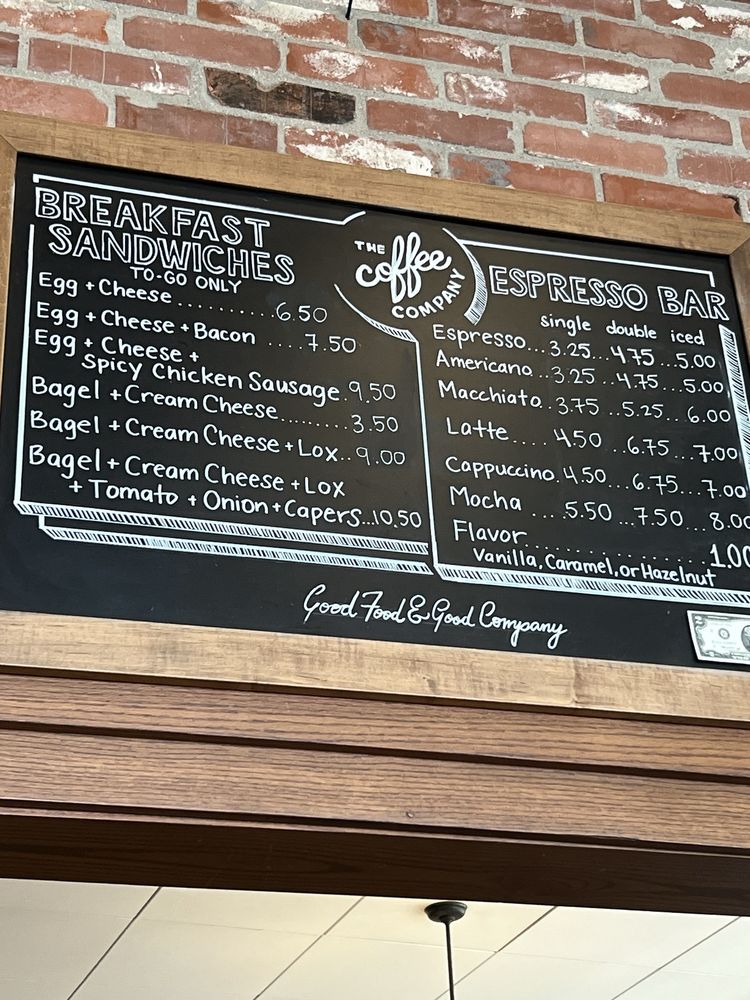 BREAKFAST
SANDWICHES
TO-GO ONLY
Egg + Cheese...........6.50
Egg + Cheese + Bacon .....7.50
Egg + Cheese +
Spicy Chicken Sausage.9.50
Bagel + Cream Cheese.........3.50
Bagel + Cream Cheese + Lox..9.00
Bagel + Cream Cheese + Lox
+ Tomato + Onion + Capers...10.50
THE
coffee
COMPANY
ESPRESSO BAR
single double iced
Espresso...3.25...4.75...5.00
Americano..3.25...4.75...5.00
Macchiato..3.75...5.25...6.00
Latte.....4.50...6.75...7.00
Cappuccino.4.50...6.75...7.00
Mocha ....5.50...7.50...8.00
Flavor...................1.00
Vanilla, Caramel, or Hazelnut
Good Food & Good Company